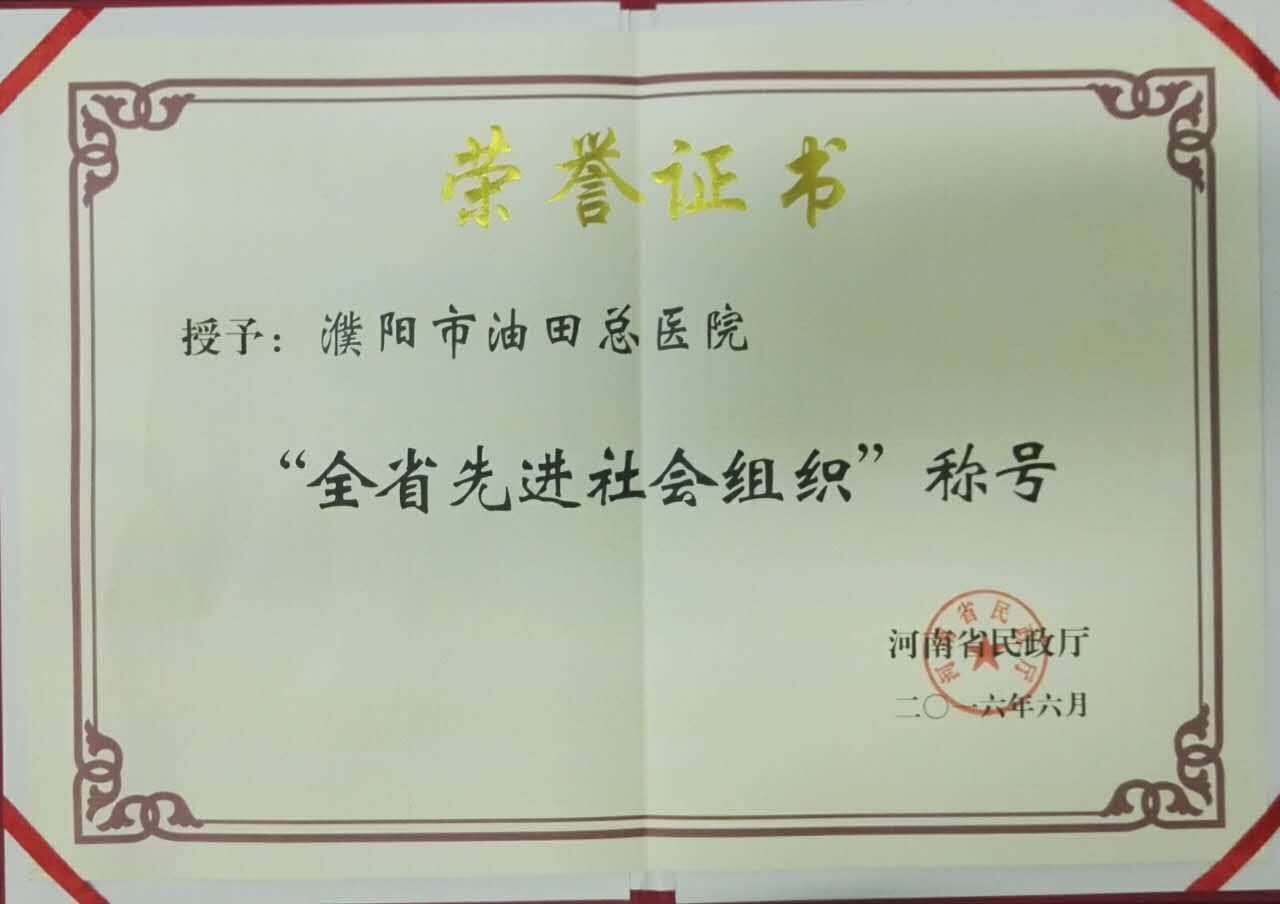 荣誉证书
授予：濮阳市油田总医院
“全省先进社会组织”称号
河南省民政厅
河南省民政厅
二〇一六年六月